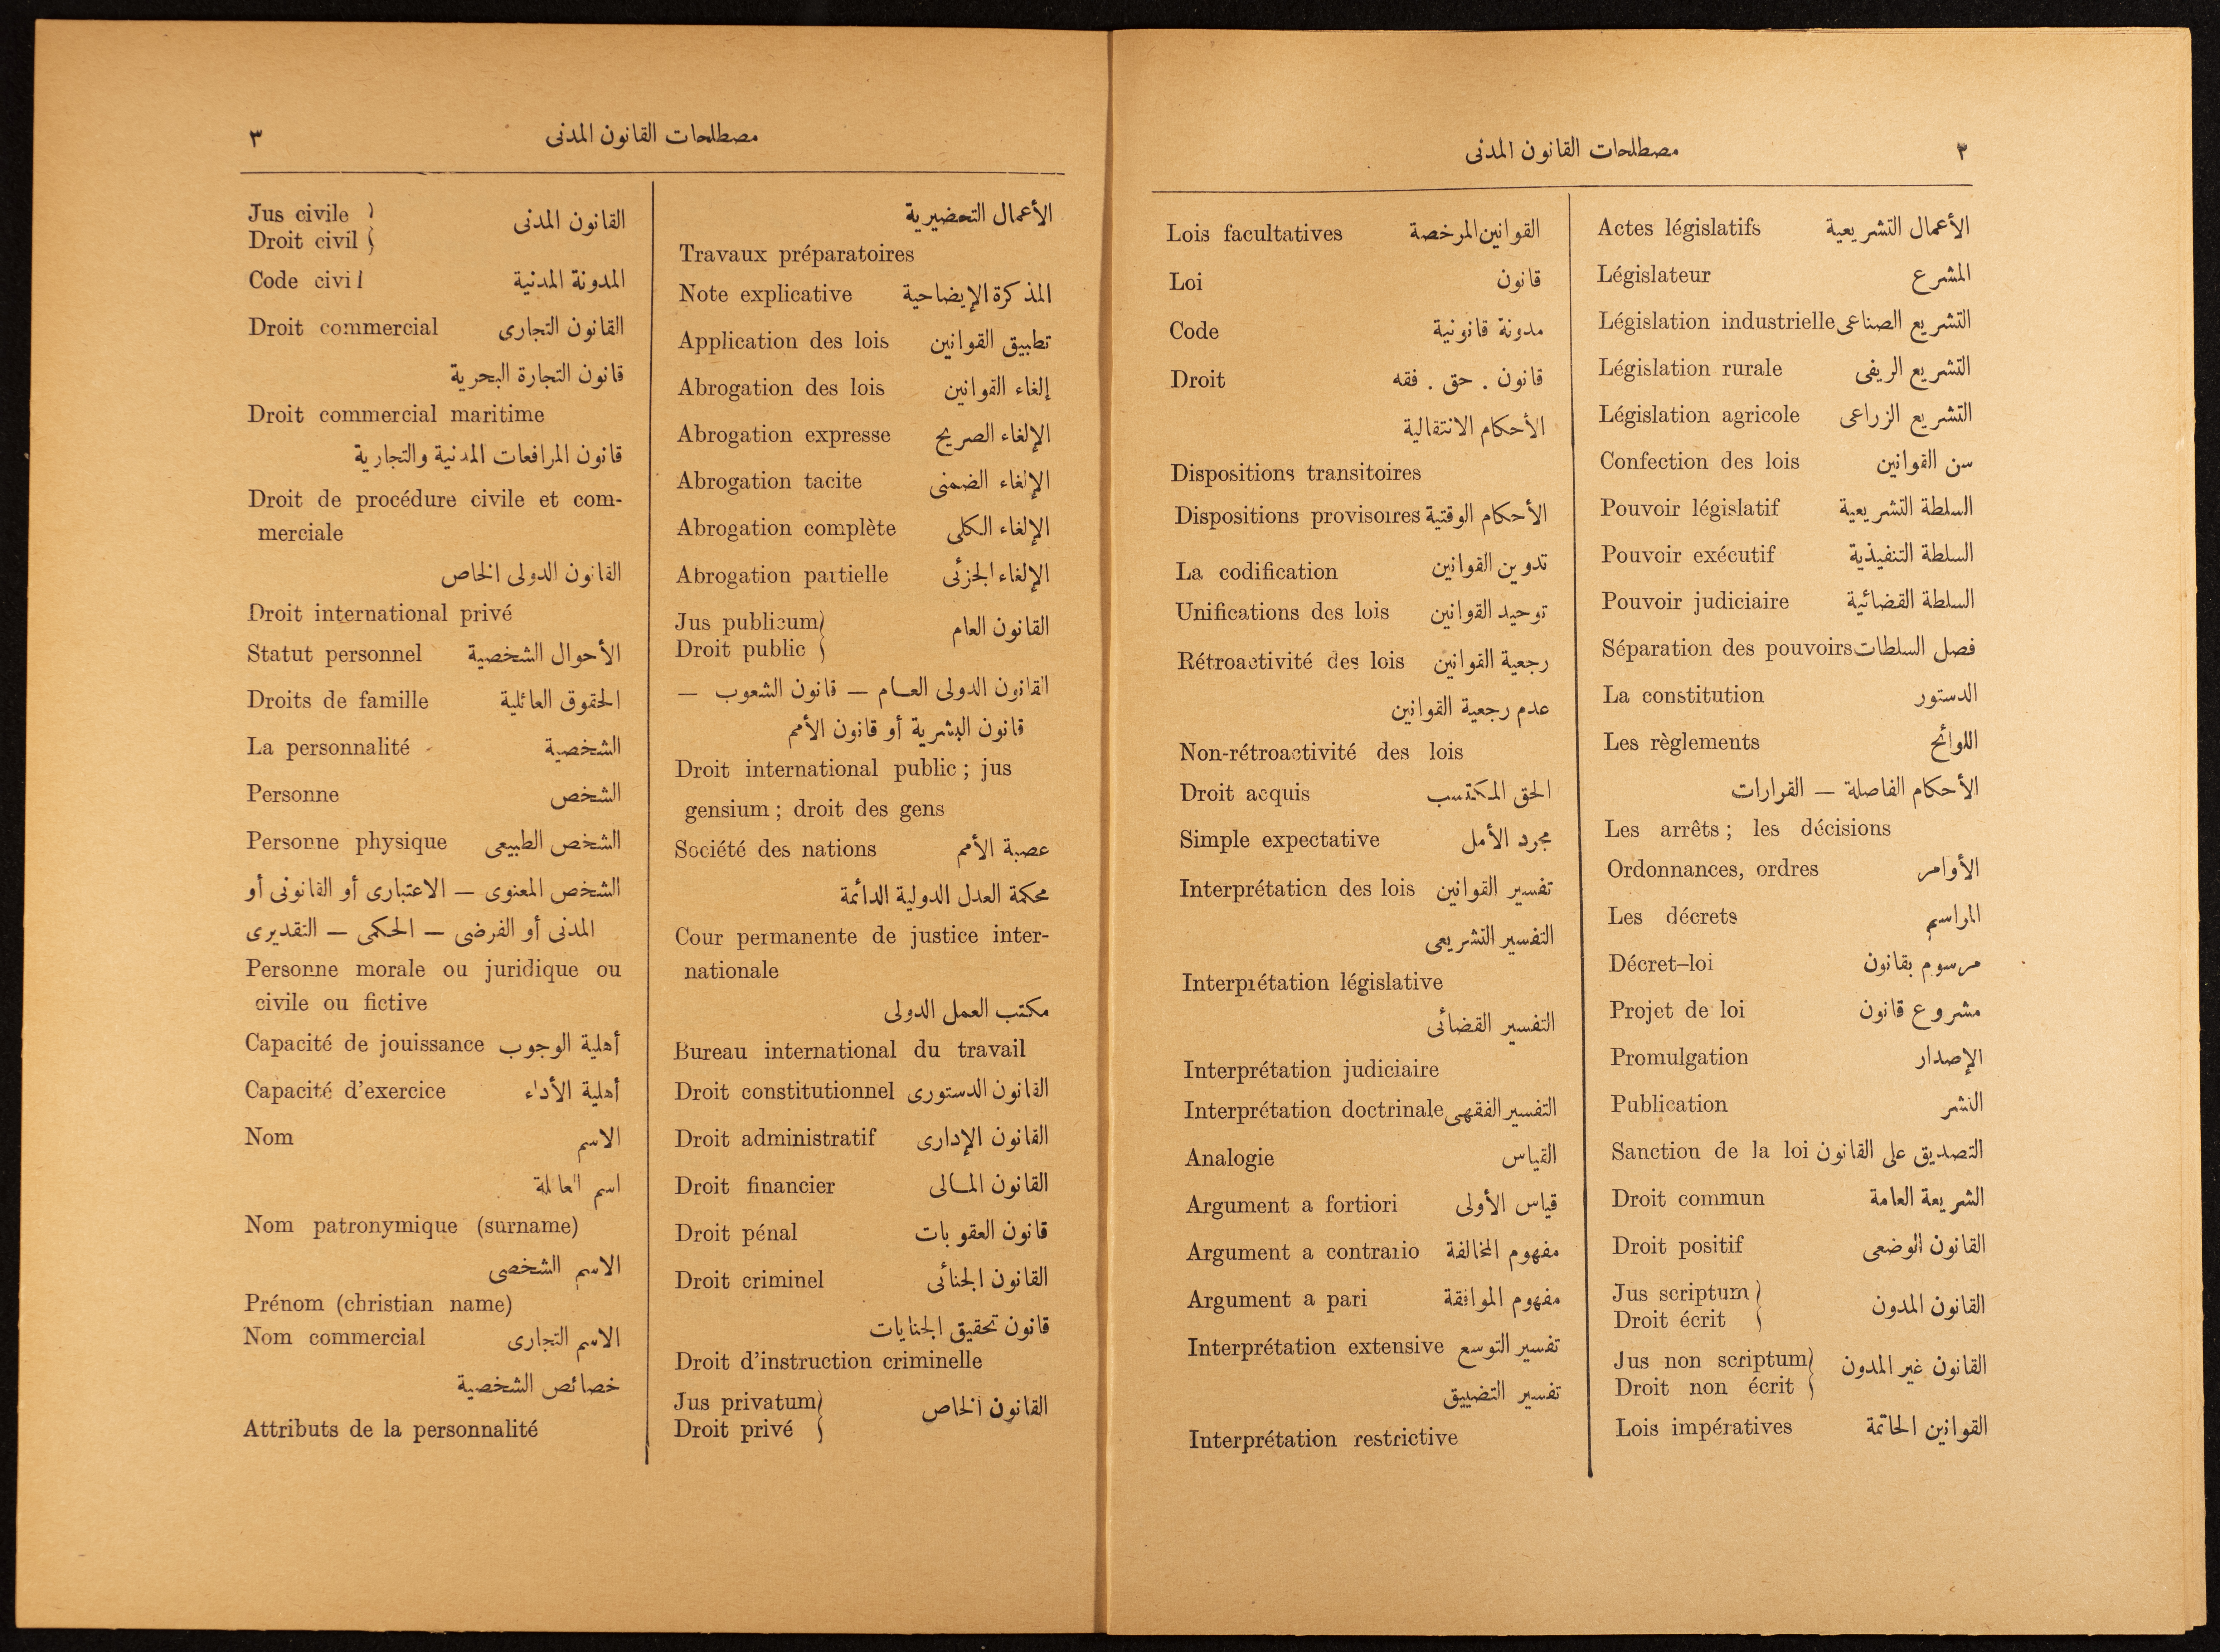 مصطلحات القانون المدنى ٢
Actes législatifs الأعمال التشريعية
Législateur المشرع
Législation industrielle التشريع الصناعى
Législation rurale التشريع الريفى
Législation agricole التشريع الزراعى
Confection des lois سن القوانين
Pouvoir législatif السلطة التشريعية
Pouvoir exécutif السلطة التنفيذية
Pouvoir judiciaire السلطة القضائية
Séparation des pouvoirs فصل السلطات
La constitution الدستور
Les règlements اللوائح
الأحكام الفاصلة — القرارات
Les arrêts ; les décisions
Ordonnances, ordres الأوامر
Les décrets المراسيم
Décret–loi مرسوم بقانون
Projet de loi مشروع قانون
Promulgation الإصدار
Publication النشر
Sanction de la loi التصديق على القانون
Droit commun الشريعة العامة
Droit positif القانون الوضعى
Jus scriptum
Droit écrit القانون المدون
Jus non scriptum
Droit non écrit القانون غير المدون
Lois impératives القوانين الحاتمة
Lois facultatives القوانين المرخصة
Loi قانون
Code مدونة قانونية
Droit قانون . حق . فقه
الأحكام الانتقالية
Dispositions transitoires
Dispositions provisoires الأحكام الوقتية
La codification تدوين القوانين
Unifications des lois توحيد القوانين
Rétroactivité des lois رجعية القوانين
عدم رجعية القوانين
Non-rétroactivité des lois
Droit acquis الحق المكتسب
Simple expectative مجرد الأمل
Interprétation des lois تفسير القوانين
التفسير التشريعى
Interprétation législative
التفسير القضائى
Interprétation judiciaire
Interprétation doctrinale التفسير الفقهى
Analogie القياس
Argument a fortiori قياس الأولى
Argument a contrario مفهوم المخالفة
Argument a pari مفهوم الموافقة
Interprétation extensive تفسير التوسع
تفسير التضييق
Interprétation restrictive
مصطلحات القانون المدنى ٣
الأعمال التحضيرية
Travaux préparatoires
Note explicative المذكرة الإيضاحية
Application des lois تطبيق القوانين
Abrogation des lois إلغاء القوانين
Abrogation expresse الإلغاء الصريح
Abrogation tacite الإلغاء الضمنى
Abrogation complète الإلغاء الكلى
Abrogation partielle الإلغاء الجزئى
Jus publicum
Droit public القانون العام
القانون الدولى العام — قانون الشعوب —
قانون البشرية أو قانون الأمم
Droit international public ; jus
gensium ; droit des gens
Société des nations عصبة الأمم
محكمة العدل الدولية الدائمة
Cour permanente de justice inter-
nationale
مكتب العمل الدولى
Bureau international du travail
Droit constitutionnel القانون الدستورى
Droit administratif القانون الإدارى
Droit financier القانون المالى
Droit pénal قانون العقوبات
Droit criminel القانون الجنائى
قانون تحقيق الجنايات
Droit d'instruction criminelle
Jus privatum
Droit privé القانون الخاص
Jus civile
Droit civil القانون المدنى
Code civil المدونة المدنية
Droit commercial القانون التجارى
قانون التجارة البحرية
Droit commercial maritime
قانون المرافعات المدنية والتجارية
Droit de procédure civile et com-
merciale
القانون الدولى الخاص
Droit international privé
Statut personnel الأحوال الشخصية
Droits de famille الحقوق العائلية
La personnalité الشخصية
Personne الشخص
Personne physique الشخص الطبيعى
الشخص المعنوى — الاعتبارى أو القانونى أو
المدنى أو الفرضى — الحكمى — التقديرى
Personne morale ou juridique ou
civile ou fictive
Capacité de jouissance أهلية الوجوب
Capacité d'exercice أهلية الأداء
Nom الاسم
اسم العائلة
Nom patronymique (surname)
الاسم الشخصى
Prénom (christian name)
Nom commercial الاسم التجارى
خصائص الشخصية
Attributs de la personnalité